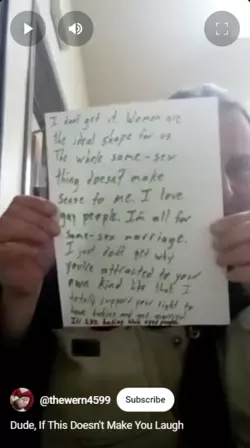 I don't get it. Women are
the ideal shape for us
The whole same-sex
thing doesn't make
sense to me. I love
gay people. I'm all for
same-sex marriage.
I just don't get why
you're attracted to your
own kind like that I
totally support your right to
have babies and get married
It's like hating blue eyed people.
@thewern4599
Subscribe
Dude, If This Doesn't Make You Laugh